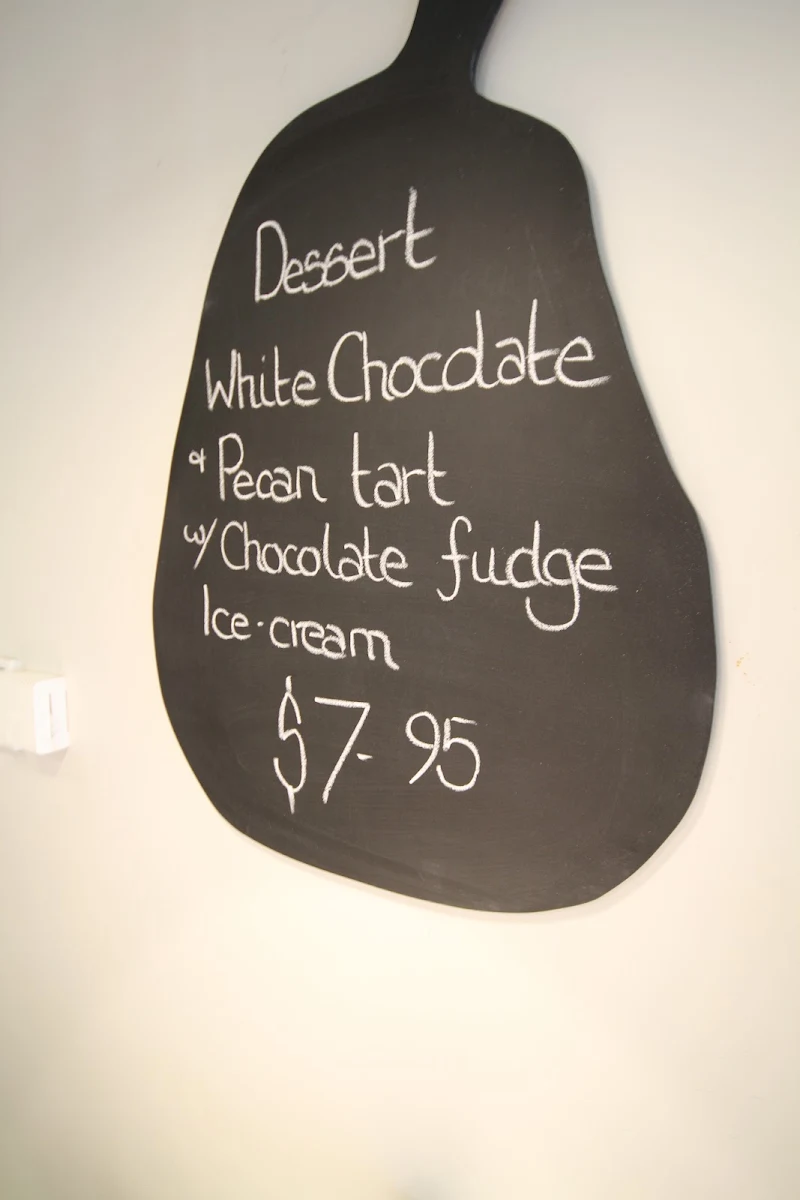 Dessert
White Chocolate
& Pecan tart
w/ Chocolate fudge
Ice-cream
$7-95